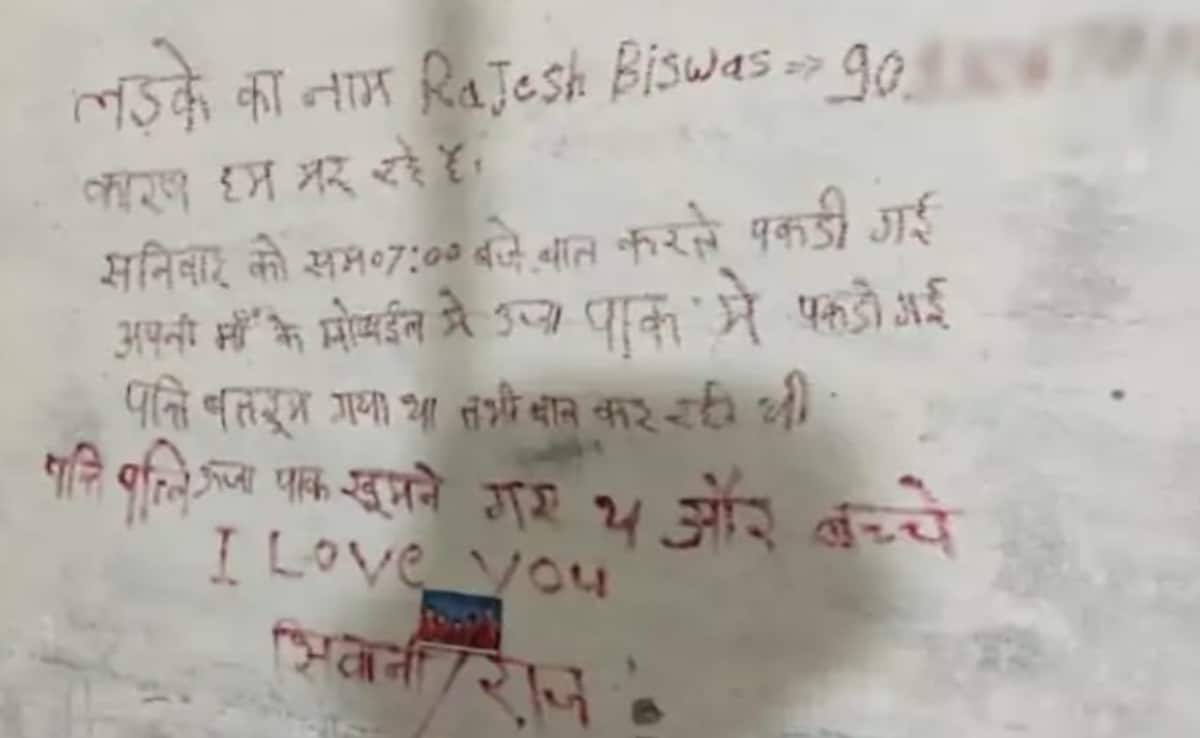 लड़के का नाम RaJesh Biswas ⇒ 90
कारण हम मर रहे है।
सनिवार को सम07:00 बजे बात करते पकडी गई
अपनी माँ के मोबाईल मे उजा पाक मे पकडी गई
पत्ति बातरूम गया था तभी बात कर रही थी
पत्ति पत्नि उजा पाक खूमने गए थ और बच्चे
I Love you
शिवानी / राज